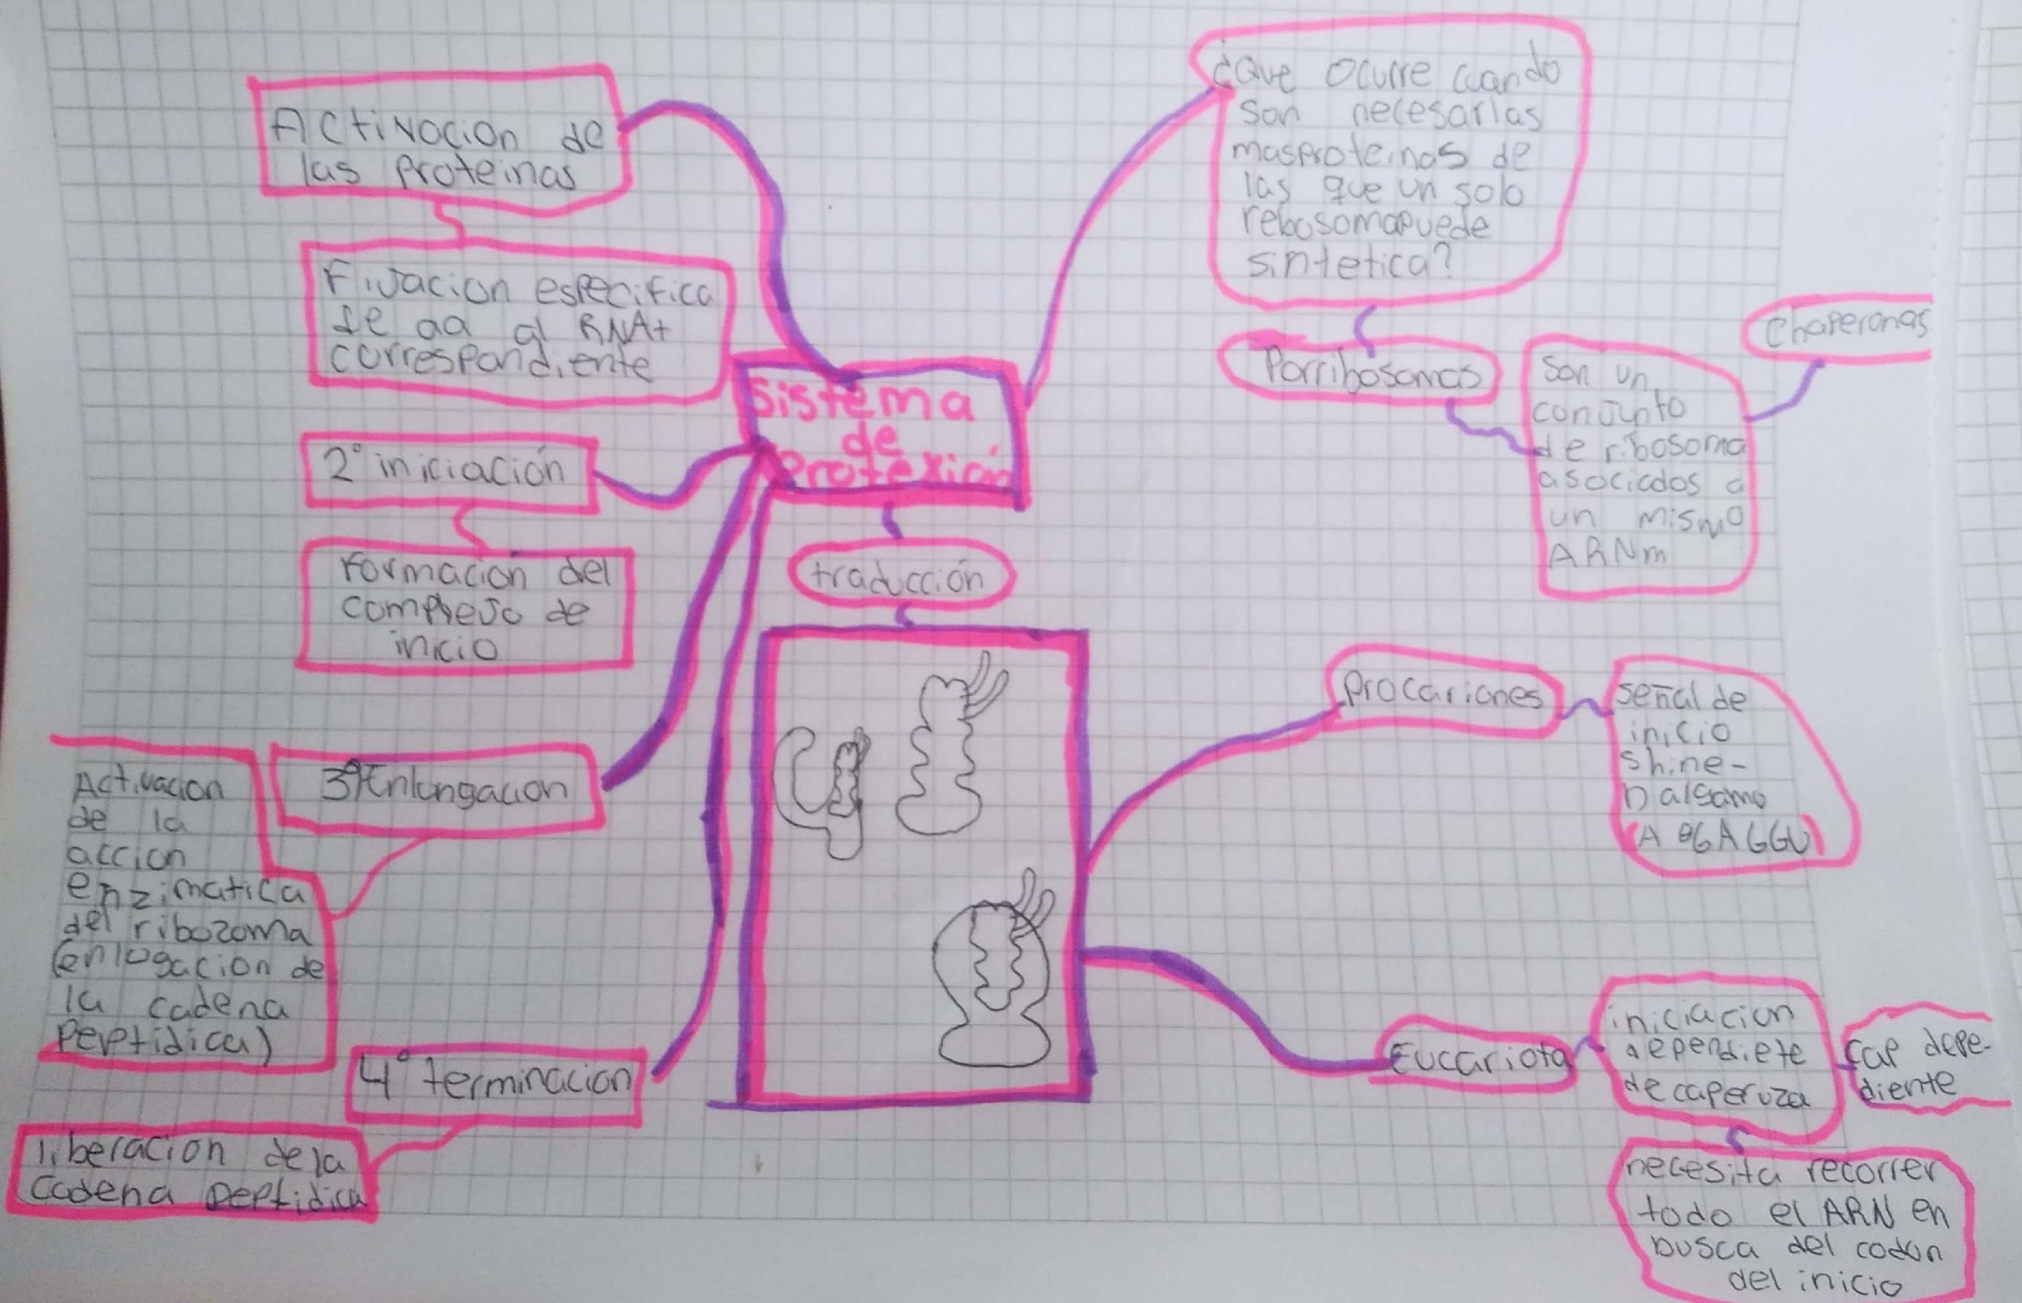 Activacion de
las proteinas
Fijacion especifica
de aa al RNAt
correspondiente
2° iniciación
Formacion del
complejo de
inicio
3° Enlongacion
Activacion
de la
accion
enzimatica
del ribozoma
(enlogacion de
la cadena
peptidica)
4° terminacion
liberacion de la
cadena peptidica
Sistema
de
Protexión
traducción
¿Que ocurre cuando
son necesarias
mas proteinas de
las que un solo
rebosoma puede
sintetica?
Porribosomas
Son un
conjunto
de ribosoma
asociados a
un mismo
ARNm
Chaperonas
Procariones
señal de
inicio
shine-
Dalgamo
(A GGAGGU)
Eucariota
iniciacion
dependiete
de caperuza
Cap depe-
diente
necesita recorrer
todo el ARN en
busca del codon
del inicio